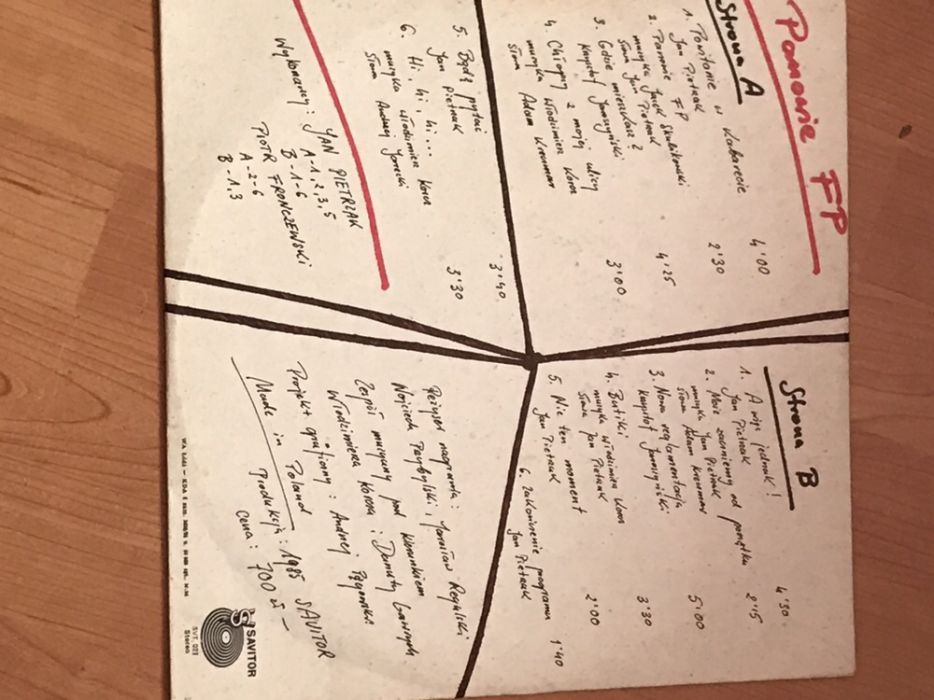 Panowie FP
Strona A
1. Powitanie w Kabarecie 4'00
Jan Pietrzak
2. Panowie FP 2'30
muzyka Jacek Skubikowski
słowa Jan Pietrzak
3. Gdzie mieszkasz? 4'25
Krzysztof Jaroszyński
4. Chłopcy z mojej ulicy 3'00
muzyka Włodzimierz Korcz
słowa Adam Kreczmar
5. Bądź pytać 3'40
Jan Pietrzak
6. Hi, hi, hi... 3'30
muzyka Włodzimierz Korcz
słowa Andrzej
Wykonawcy: JAN PIETRZAK
A-1,2,3,5
B-1-6
PIOTR FRONCZEWSKI
A-2-6
B-1,3
Strona B
1. A więc jednak! 4'30
Jan Pietrzak
2. Może zaczniemy od początku 2'15
muzyka Jan Pietrzak
słowa Adam Kreczmar
3. Nowa reglamentacja 5'00
Krzysztof Jaroszyński
4. Butiki 3'30
muzyka Włodzimierz Korcz
słowa Jan Pietrzak
5. Nie ten moment 2'00
Jan Pietrzak
6. Zakończenie programu 1'40
Jan Pietrzak
Reżyser nagrania:
Wojciech Przybylski i Jarosław Regulski
Zespół muzyczny pod kierunkiem
Włodzimierza Korcza i Danuty
Projekt graficzny: Andrzej
Made in Poland
Produkcja: 1985 SAVITOR
cena: 700 zł -
SAVITOR
SVT 003
Stereo